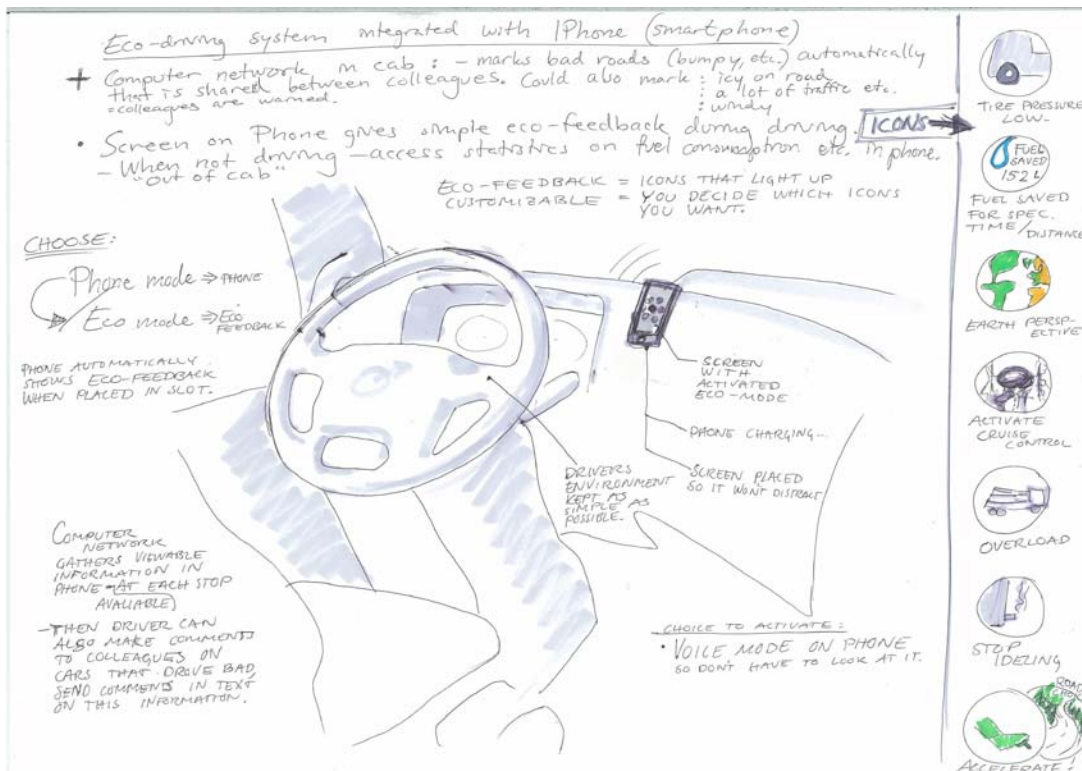 Eco-driving system integrated with IPhone (smartphone)
+ Computer network in cab : - marks bad roads (bumpy, etc.) automatically
that is shared between colleagues. Could also mark : icy on road
= colleagues are warned.
: a lot of traffic etc.
: windy
• Screen on Phone gives simple eco-feedback during driving.
- When not driving - access statistics on fuel consumption etc. in phone.
"out of cab"
ICONS
ECO-FEEDBACK = ICONS THAT LIGHT UP
CUSTOMIZABLE = YOU DECIDE WHICH ICONS
YOU WANT.
CHOOSE:
Phone mode ⇒ PHONE
Eco mode ⇒ ECO
FEEDBACK
PHONE AUTOMATICALLY
SHOWS ECO-FEEDBACK
WHEN PLACED IN SLOT.
SCREEN
WITH
ACTIVATED
ECO-MODE
PHONE CHARGING...
SCREEN PLACED
SO IT WON'T DISTRACT
DRIVERS
ENVIRONMENT
KEPT AS
SIMPLE AS
POSSIBLE.
COMPUTER
NETWORK
GATHERS VIEWABLE
INFORMATION IN
PHONE (AT EACH STOP
AVALIABLE)
- THEN DRIVER CAN
ALSO MAKE COMMENTS
TO COLLEAGUES ON
CARS THAT DROVE BAD,
SEND COMMENTS IN TEXT
ON THIS INFORMATION.
CHOICE TO ACTIVATE:
• VOICE MODE ON PHONE
SO DON'T HAVE TO LOOK AT IT.
TIRE PRESSURE
LOW
FUEL
SAVED
152 L
FUEL SAVED
FOR SPEC.
TIME/DISTANCE
EARTH PERSP-
ECTIVE
ACTIVATE
CRUISE
CONTROL
OVERLOAD
STOP
IDELING
ACCELERATE!